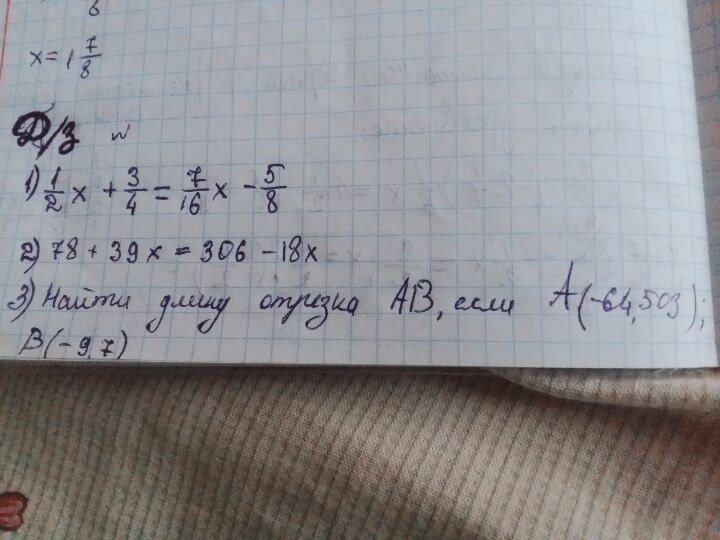 8
x = 1 7/8
Д/з №
1) 1/2 x + 3/4 = 7/16 x - 5/8
2) 78 + 39x = 306 - 18x
3) Найти длину отрезка AB, если A(-64,503);
B(-9,7)